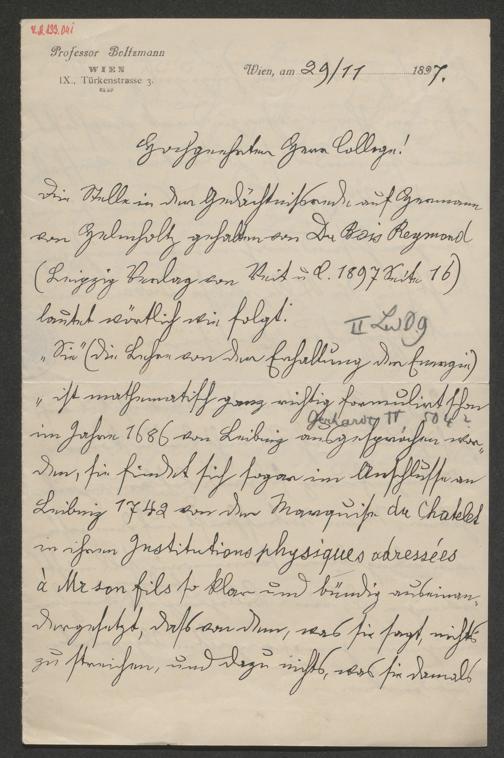 Professor Boltzmann
WIEN
IX., Türkenstrasse 3.
Wien, am 29/11 1897.
Hochgeehrter Herr College!
Die Stelle in der Gedächtnissrede auf Hermann
von Helmholtz gehalten von Du Bois Reymond
(Leipzig Verlag von Veit u C. 1897 Seite 16)
lautet wörtlich wie folgt:
II
„Sie" (die Lehre von der Erhaltung der Energie)
„ist mathematisch ganz richtig formulirt schon
Gerhardt IV
im Jahre 1686 von Leibnig ausgesprochen wor-
den, sie findet sich sogar im Anschlusse an
Leibnig 1742 von der Marquise du Chatelet
in ihren Institutions physiques adressées
à Mr son fils so klar und bündig auseinan-
dergesetzt, dass von dem, was sie sagt, nichts
zu streichen, und dazu nichts, was sie damals